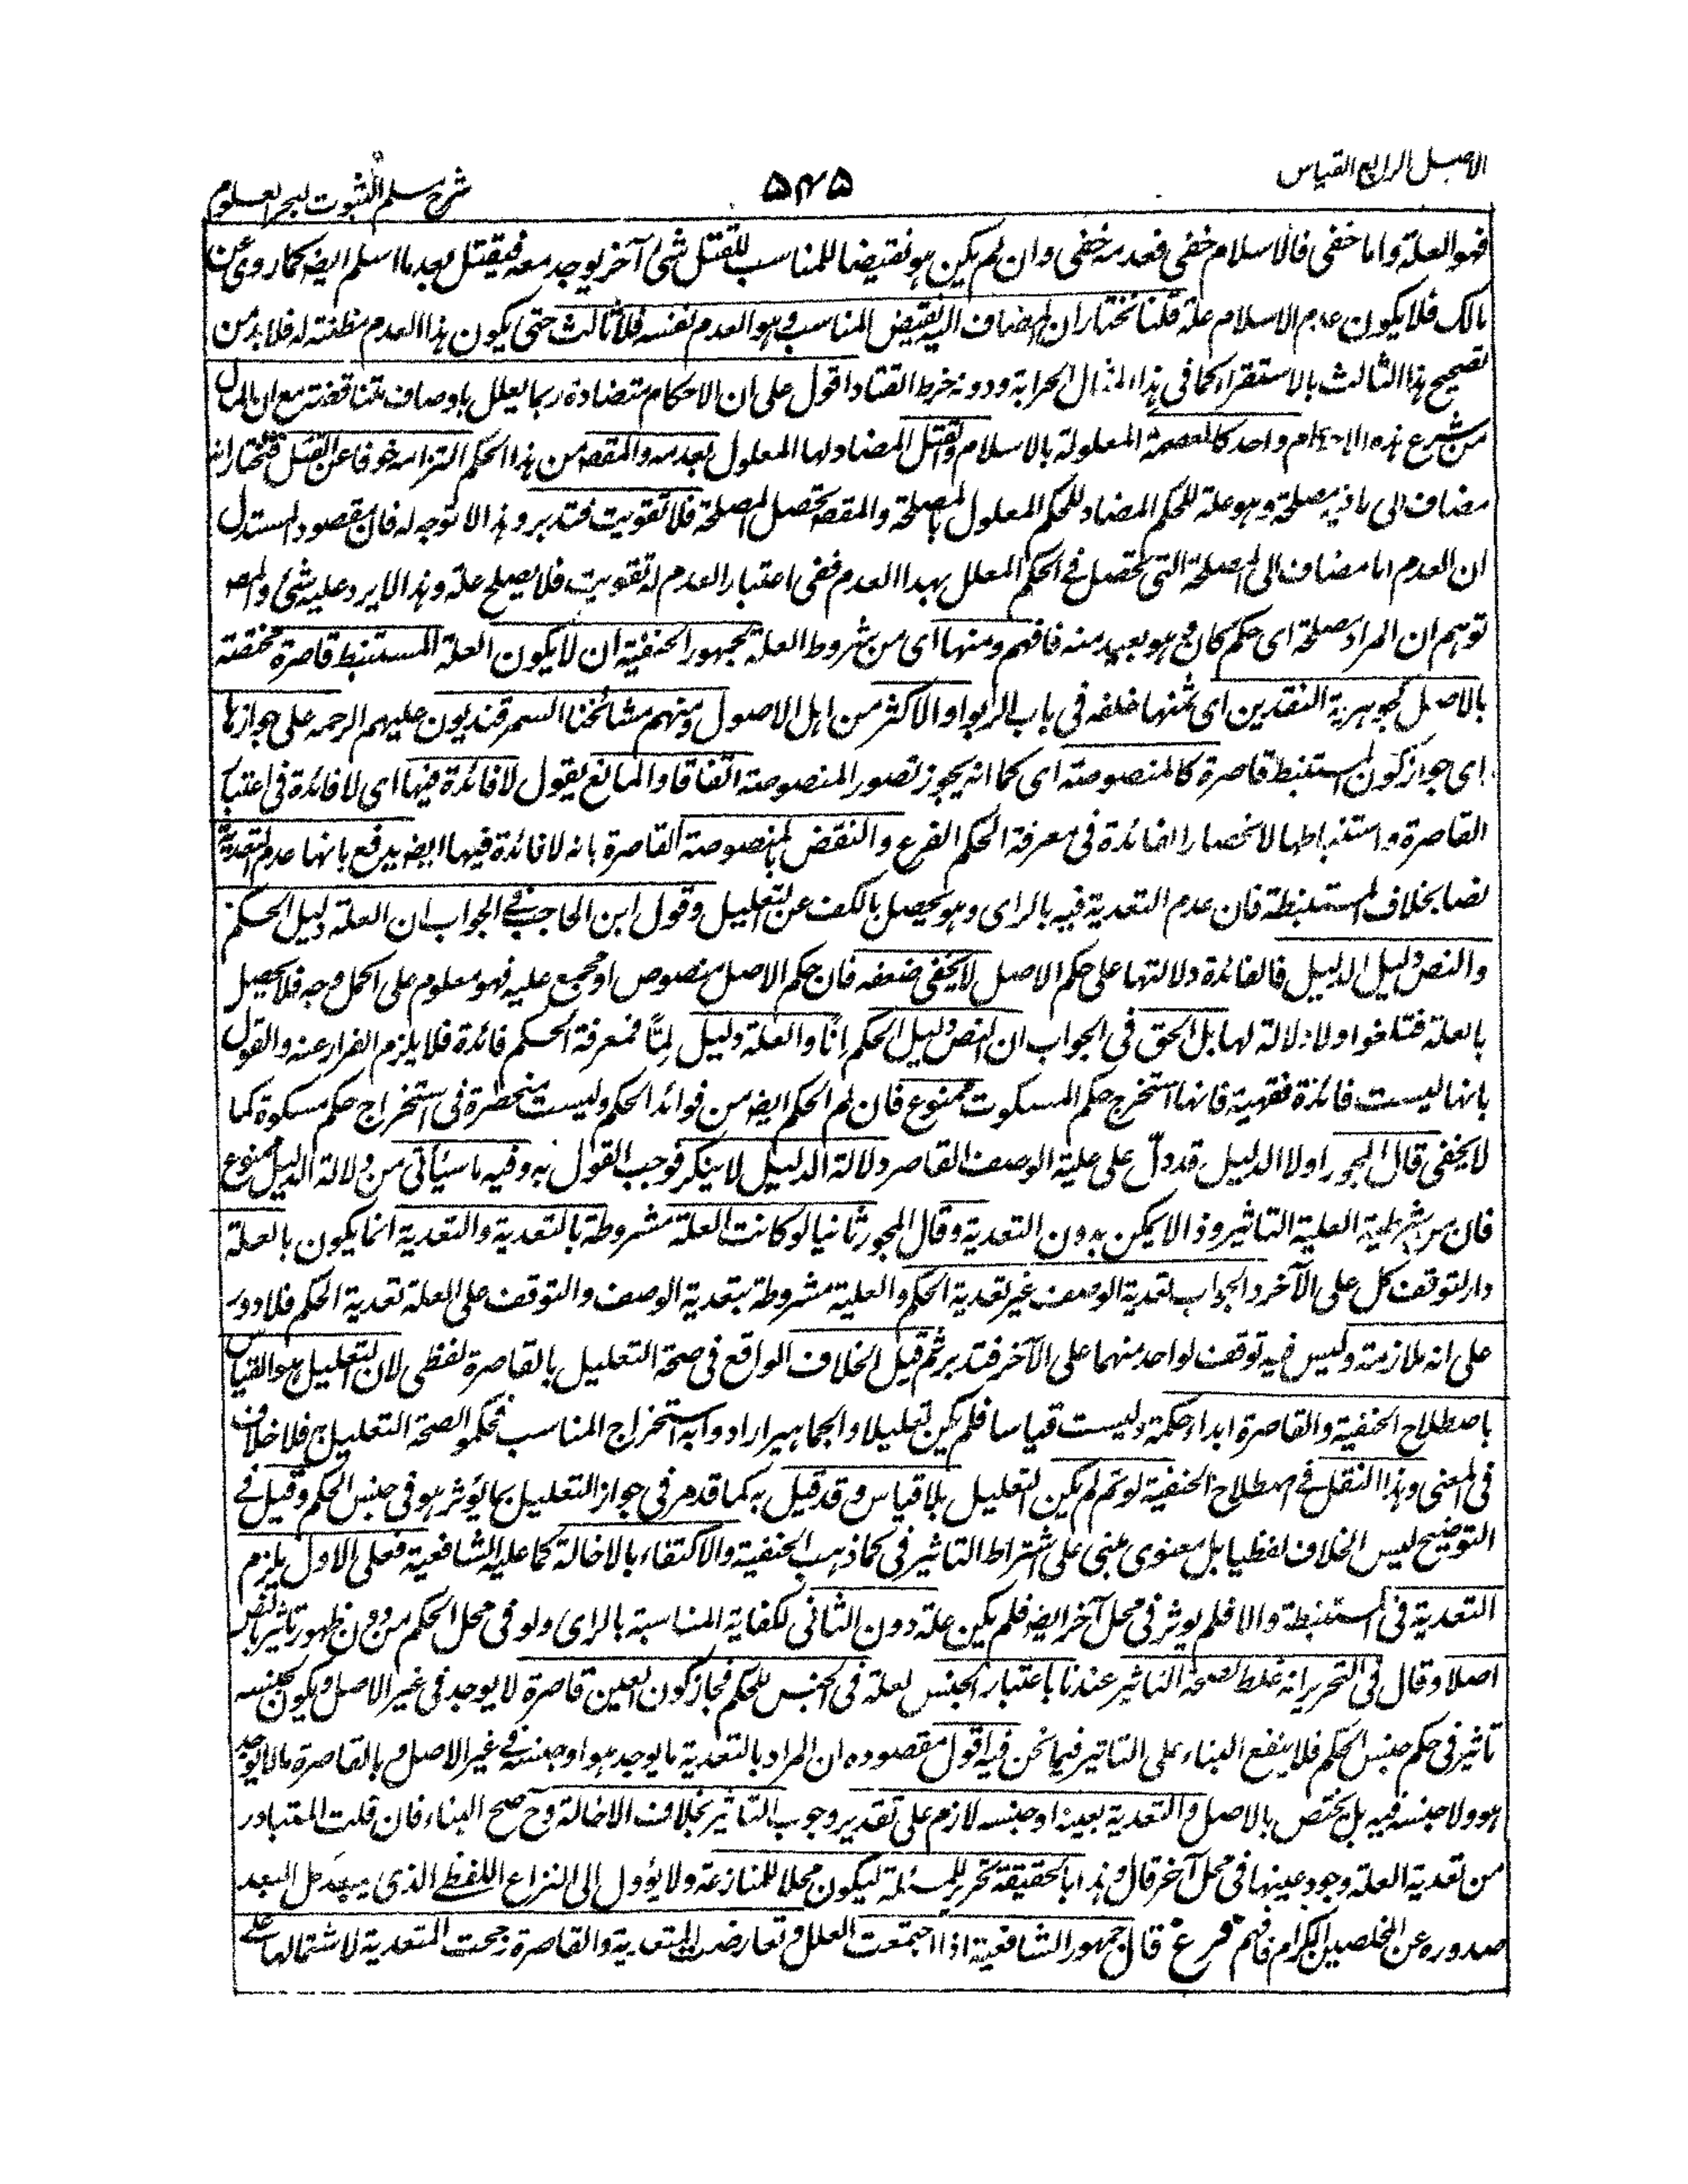 الاصل الرابع القياس
۵۴۵
شرح مسلم الثبوت لبحر العلوم
فهو العلة واما خفي فالاسلام خفي فعدمه خفي وان لم يكن هو نقيضا للمناسب للقتل شئ آخر يوجد معه فيقتل بعد ما اسلم ايضا كما روي عن
مالك فلا يكون عدم الاسلام علة قلنا نختار ان المضاف اليه نقيض المناسب وهو العدم نفسه فلا ثالث حتى يكون هذا العدم مظنته له فلا بد من
تصحيح هذا الثالث بالاستقراء كما في هذا المثال الحرابة ودونه خرط القتاد اقول على ان الاحكام متضادة ربما يعلل باوصاف متناقضة مع ان المآل
من شرع هذه الاحكام واحد كالعصمة المعلولة بالاسلام والقتل المضاد لها المعلول بعدمه والمقصه من هذا الحكم التزامه خوفا عن القتل فنختار انه
مضاف الى ما فيه مصلحة وهو علة للحكم المضاد للحكم المعلول بالمصلحة والمقصه تحصل المصلحة فلا تفويت فتدبر وهذا لا توجه له فان مقصود المستدل
ان العدم اما مضاف الى المصلحة التي تحصل في الحكم المعلل بهذا العدم ففي اعتبار العدم له تفويت فلا يصلح علة وهذا لا يرد عليه شئ والمصه
توهم ان المراد مصلحة اي حكم كان وهو بعيد منه فافهم ومنها اي من شروط العلة لجمهور الحنفية ان لا يكون العلة المستنبط قاصرة مختصة
بالاصل كجوهرية النقدين اي ثمنها خلقه في باب الربوا والاكثر من اهل الاصول ومنهم مشائخنا السمرقنديون عليهم الرحمه على جوازها
اي جواز كون المستنبط قاصرة كالمنصوصة اي كما انه يجوز تصور المنصوصة اتفاقا والمانع يقول لا فائدة فيها اي لا فائدة في اعتبار
القاصرة واستنباطها لانحصار الفائدة في معرفة الحكم الفرع والنقض بالمنصوصة القاصرة بانه لا فائدة فيها ايضا يدفع بانها عدم التعدية
نصا بخلاف المستنبطة فان عدم التعدية فيه بالراي وهو يحصل بالكف عن التعليل وقول ابن الحاجب في الجواب ان العلة دليل الحكم
والنص دليل الدليل فالفائدة دلالتها على حكم الاصل لا يخفى ضعفه فان حكم الاصل منصوص او مجمع عليه فهو معلوم على اكمل وجه فلا يحصل
بالعلة فتلغوا ولا دلالة لها بل الحق في الجواب ان النص دليل الحكم اِنًّا والعلة دليل لِمًّا فمعرفة الحكم فائدة فلا يلزم الفرار عنه والقول
بانها ليست فائدة فقهية فانها استخرج حكم المسكوت ممنوع فان لم الحكم ايضا من فوائد الحكم وليست منحصرة في استخراج حكم مسكوة كما
لا يخفى قال المجوز اولا الدليل قد دلّ على علية الوصف القاصر ودلالة الدليل لا ينكر فوجب القول به وفيه ما سيأتي من دلالة الدليل ممنوع
فان من شرطية العلية التاثير وذا لا يمكن بدون التعدية وقال المجوز ثانيا لو كانت العلة مشروطة بالتعدية والتعدية انما يكون بالعلة
دار لتوقف كل على الآخر والجواب تعدية الوصف غير تعدية الحكم والعلية مشروطة بتعدية الوصف والتوقف على العلة تعدية الحكم فلا دور
على انه ملازمة وليس فيه توقف لواحد منهما على الآخر فتدبر ثم قيل الخلاف الواقع في صحة التعليل بالقاصرة لفظي لان التعليل هو القياس
باصطلاح الحنفية والقاصرة ابداء حكمة وليست قياسا فلم يكن تعليلا والجماهير ارادوا به استخراج المناسب فحكموا لصحة التعليل بها فلا خلاف
في المعنى وهذا النقل في اصطلاح الحنفية لو تم لم يكن التعليل بلا قياس وقد قيل به كما قد مر في جواز التعليل بما يؤثر هو في جنس الحكم وقيل في
التوضيح ليس الخلاف لفظيا بل معنوي مبني على اشتراط التاثير في كما ذهب الحنفية والاكتفاء بالاخالة كما عليه الشافعية فعلى الاول يلزم
التعدية في المستنبطة والا فلم يوثر في محل آخر ايضا فلم يكن علة دون الثاني لكفاية المناسبة بالراي ولو في محل الحكم من دون ظهور تاثير بالنص
اصلا وقال في التحرير انه غلط لصحة التاثير عندنا باعتبار الجنس لعلة في الجنس للحكم فجاز كون العين قاصرة لا يوجد في غير الاصل ويكون لجنسه
تاثير في حكم جنس الحكم فلا ينفع البناء على التاثير فيما نحن فيه اقول مقصوده ان المراد بالتعدية ما يوجد هو او جنسه في غير الاصل وبالقاصرة ما لا يوجد
هو ولا جنسه فيه بل يختص بالاصل والتعدية بعينه او جنسه لازم على تقدير وجوب التاثير بخلاف الاخالة وح صح البناء فان قلت المتبادر
من تعدية العلة وجود عينها في محل آخر قال وهذا بالحقيقة تحرير للمسئلة ليكون محلا للمنازعة ولا يؤول الى النزاع اللفظي الذي يبعد كل البعد
صدوره عن المخلصين الكرام فافهم فرع قال جمهور الشافعية اذا اجتمعت العلل وتعارضت المتعدية والقاصرة رجحت المتعدية لاشتمالها على